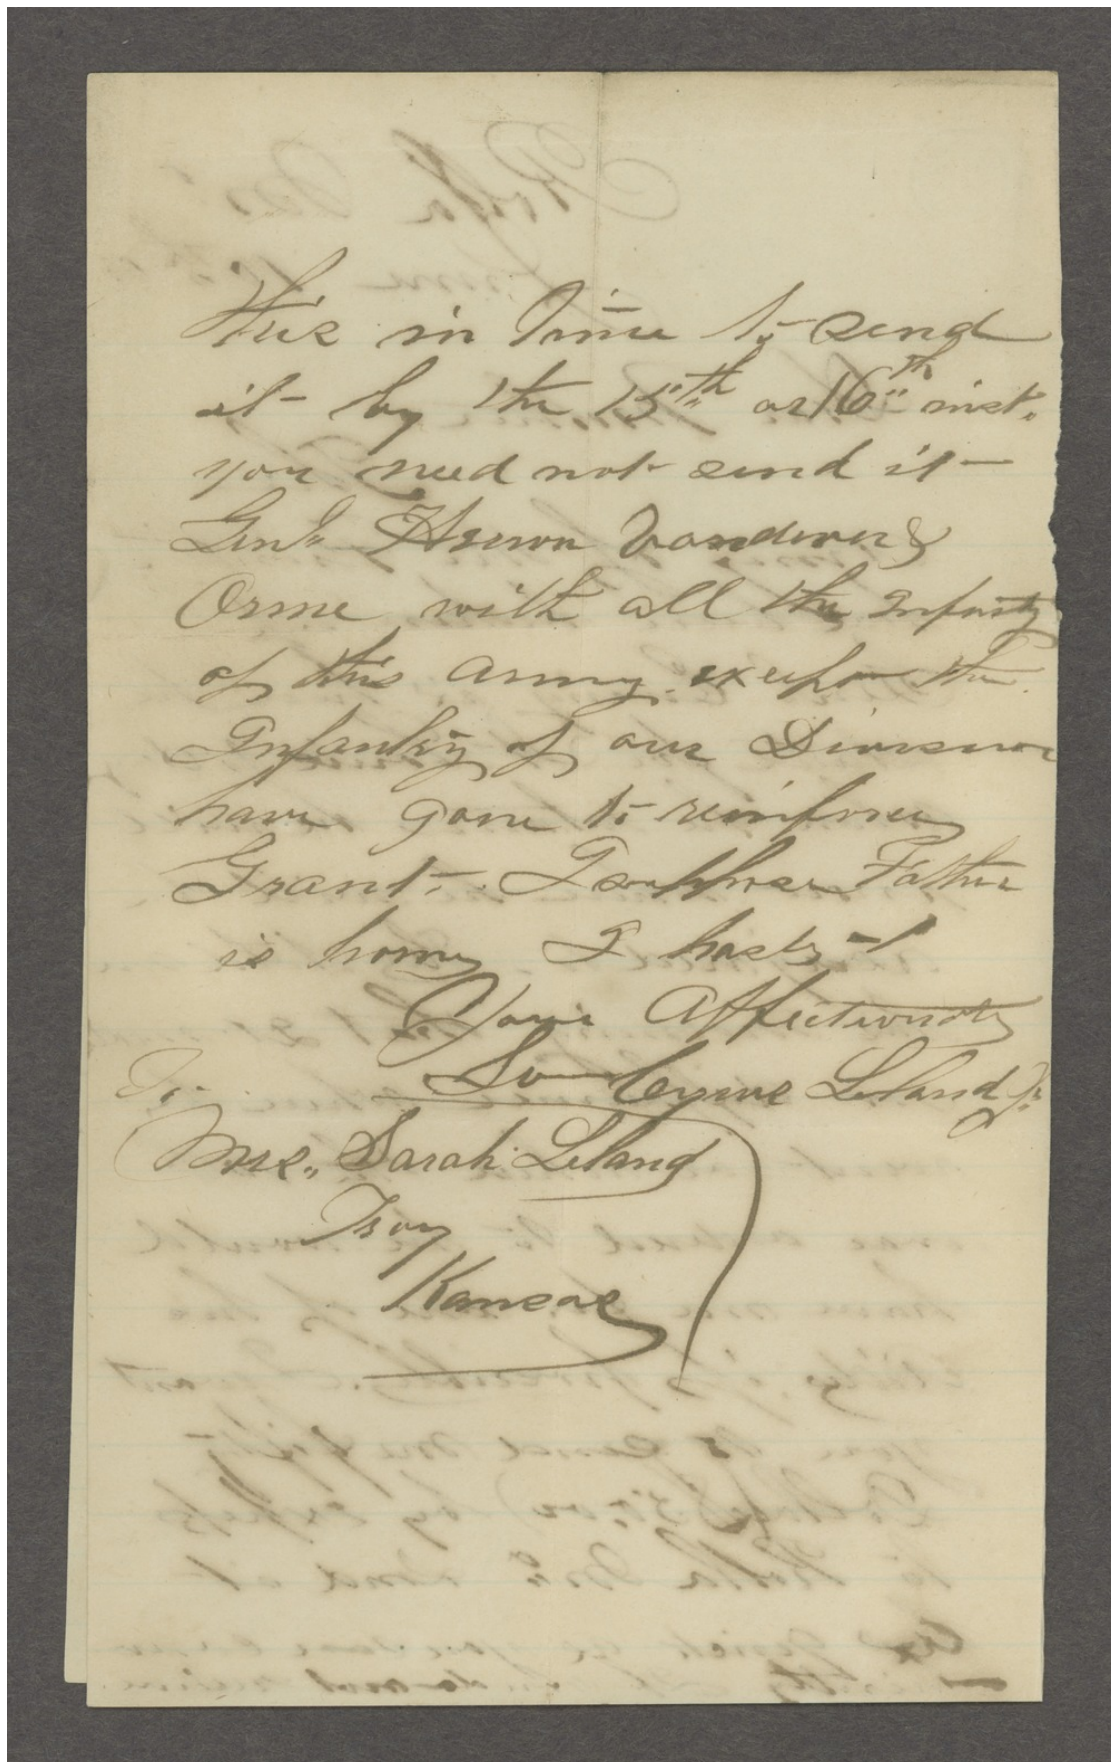 this in time to send
it by the 15th or 16th inst.
you need not send it
Genls Herron Vandever &
Orme with all the Infantry
of this army except the
Infantry of our Division
have gone to reinforce
Grant. I suppose Father
is home I haste
Yours Affectionately
Son Cyrus Leland Jr.
To
Mrs. Sarah Leland
Troy
Kansas